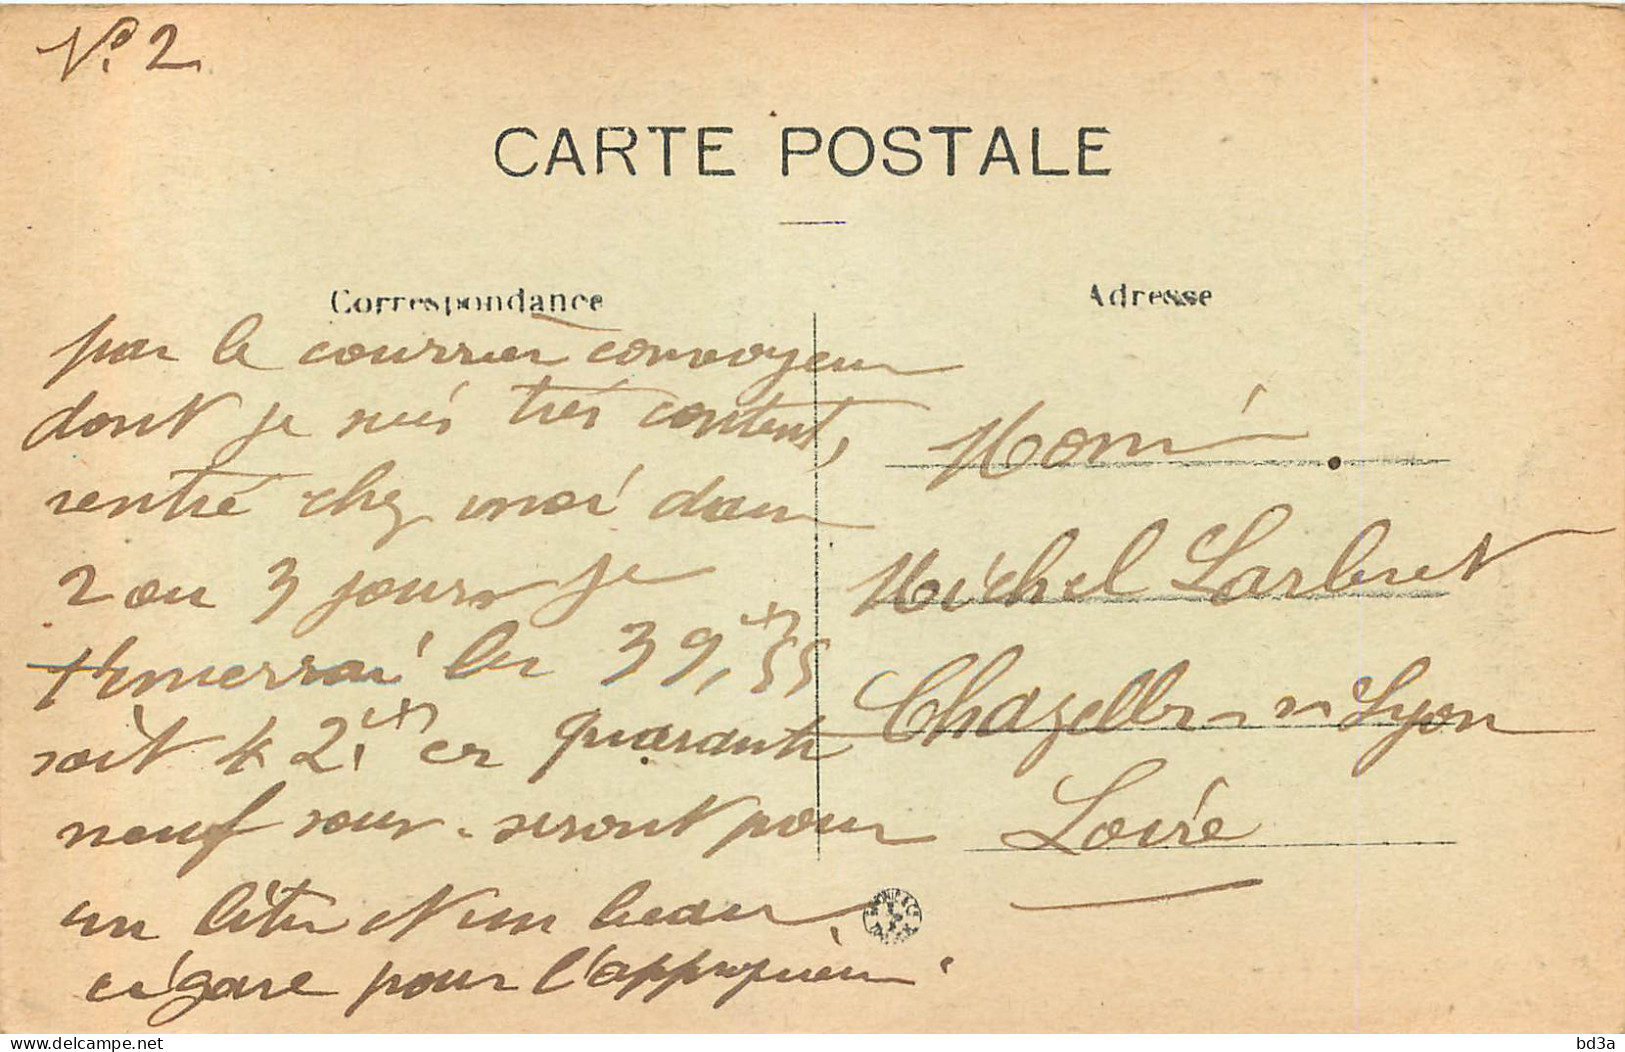 N° 2
CARTE POSTALE
Correspondance
Adresse
par le courrier convoyeur
dont je suis très content,
rentré chez moi dans
2 ou 3 jours je
les 39, 55
soit 42, et quarante
neuf sous. seront pour
un litre et un beau
cigare pour l'
Momi.
Michel Larbret
Chazelles s/ Lyon
Loire
delcampe.net
bd3a